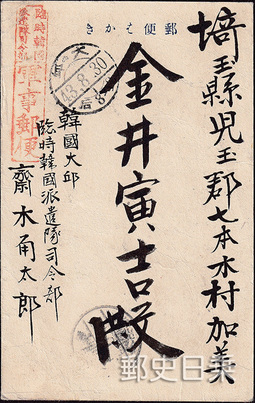 郵便はかき
埼玉縣児玉郡七本木村加美
金井寅吉殿
43.8.30
韓國大邱
臨時韓國派遣隊司令部
齋木甬太郎
臨時韓國
派遣隊司令部
軍事郵便
郵史来日